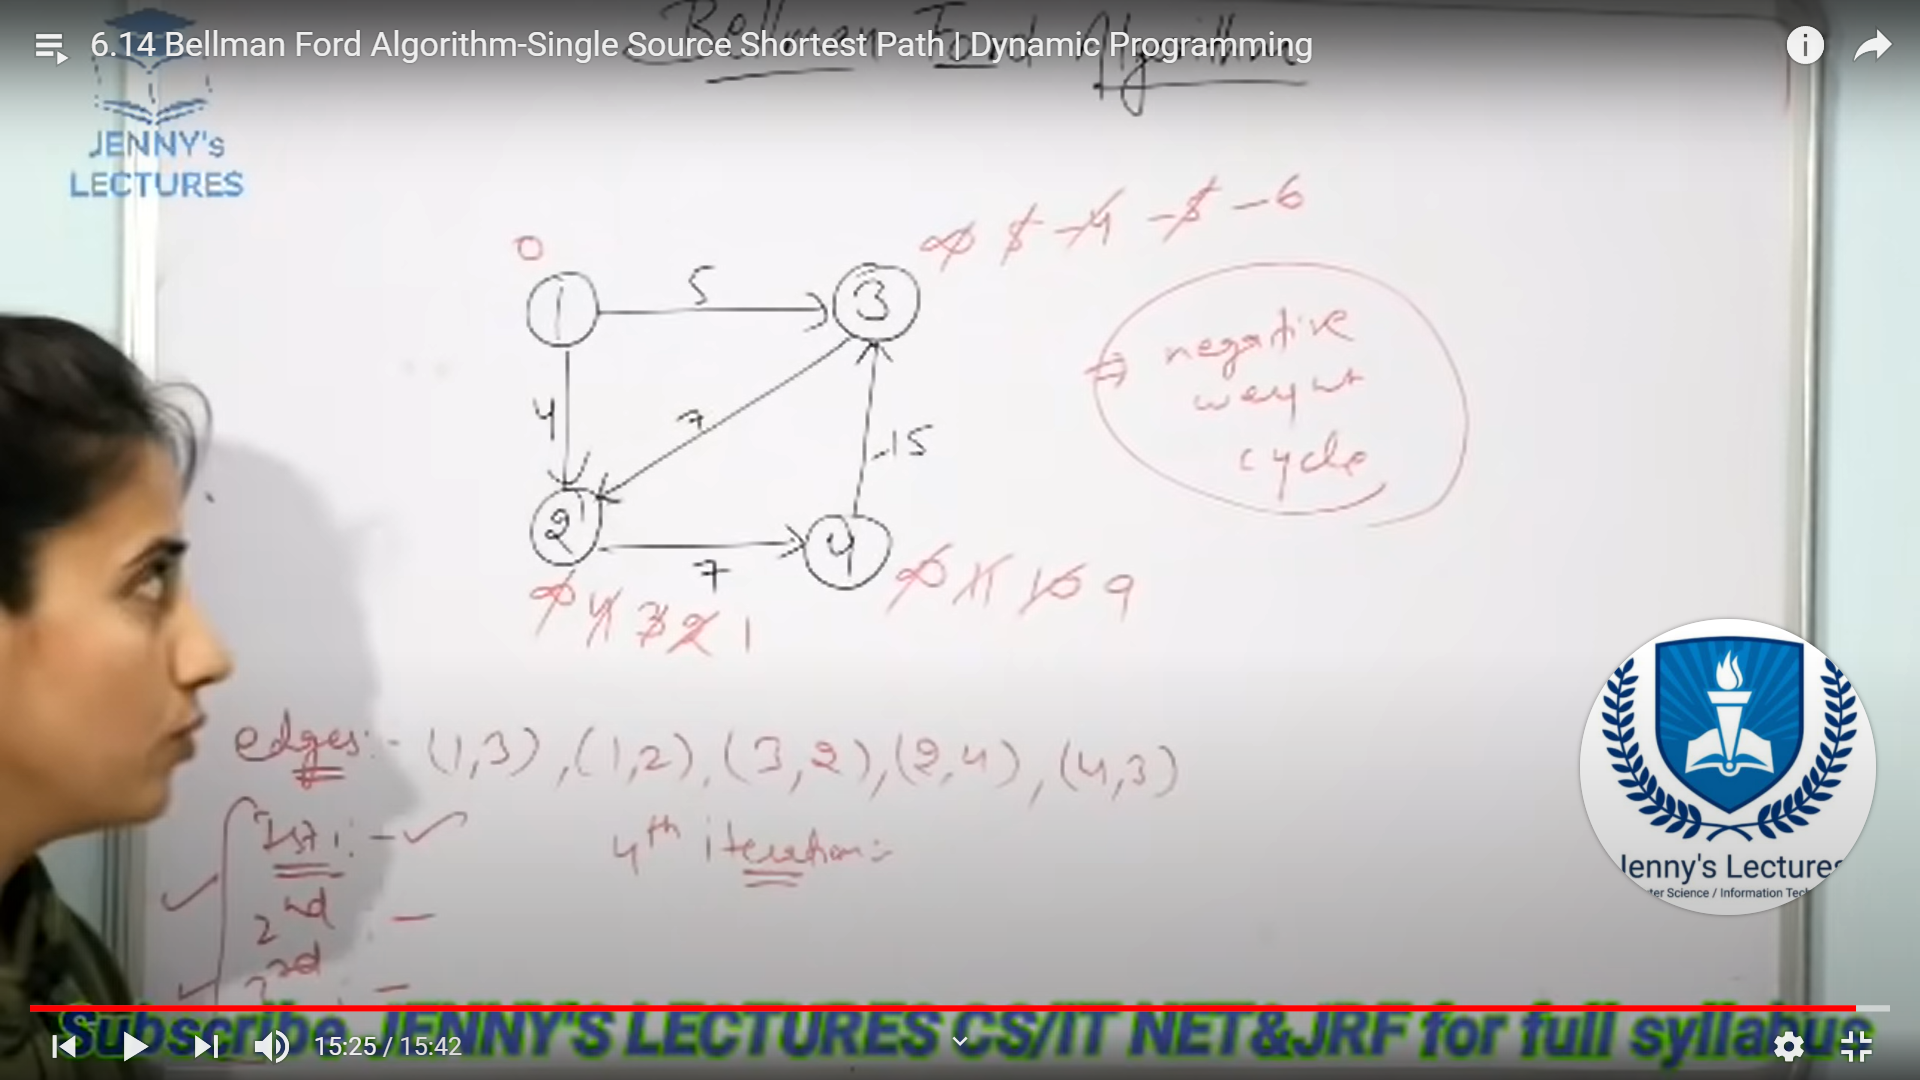 6.14 Bellman Ford Algorithm-Single Source Shortest Path | Dynamic Programming
Bellman Ford Algorithm
JENNY's
LECTURES
0
1
5
3
∞ 5 -4 -5 -6
4
7
-15
⇒ negative
weight
cycle
2
7
4
∞ 4 3 2 1
∞ 11 10 9
edges:- (1,3), (1,2), (3,2), (2,4), (4,3)
1st i:-
4th iteration:-
2nd : -
3rd : -
Jenny's Lectures
ter Science / Information Tec
Subscribe JENNY'S LECTURES CS/IT NET&JRF for full syllabus
15:25 / 15:42